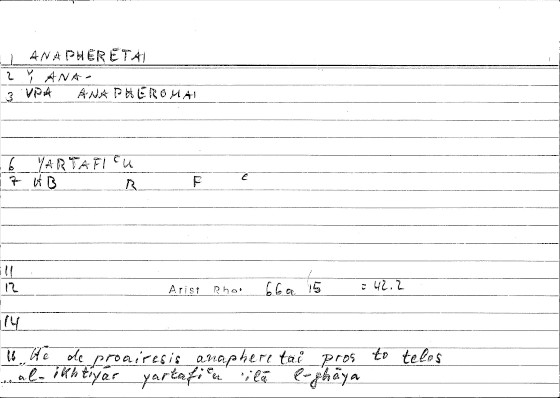 1 ANAPHERETAI
2 Y, ANA-
3 VPA ANAPHEROMAI
6 YARTAFIᶜU
7 HB R F ᶜ
11
12 Arist Rho. 66a 15 = 42.2
14
Hē de proairesis anapheretai pros to telos
..al-ikhtiyār yartafiᶜu ʼilā l-ghāya